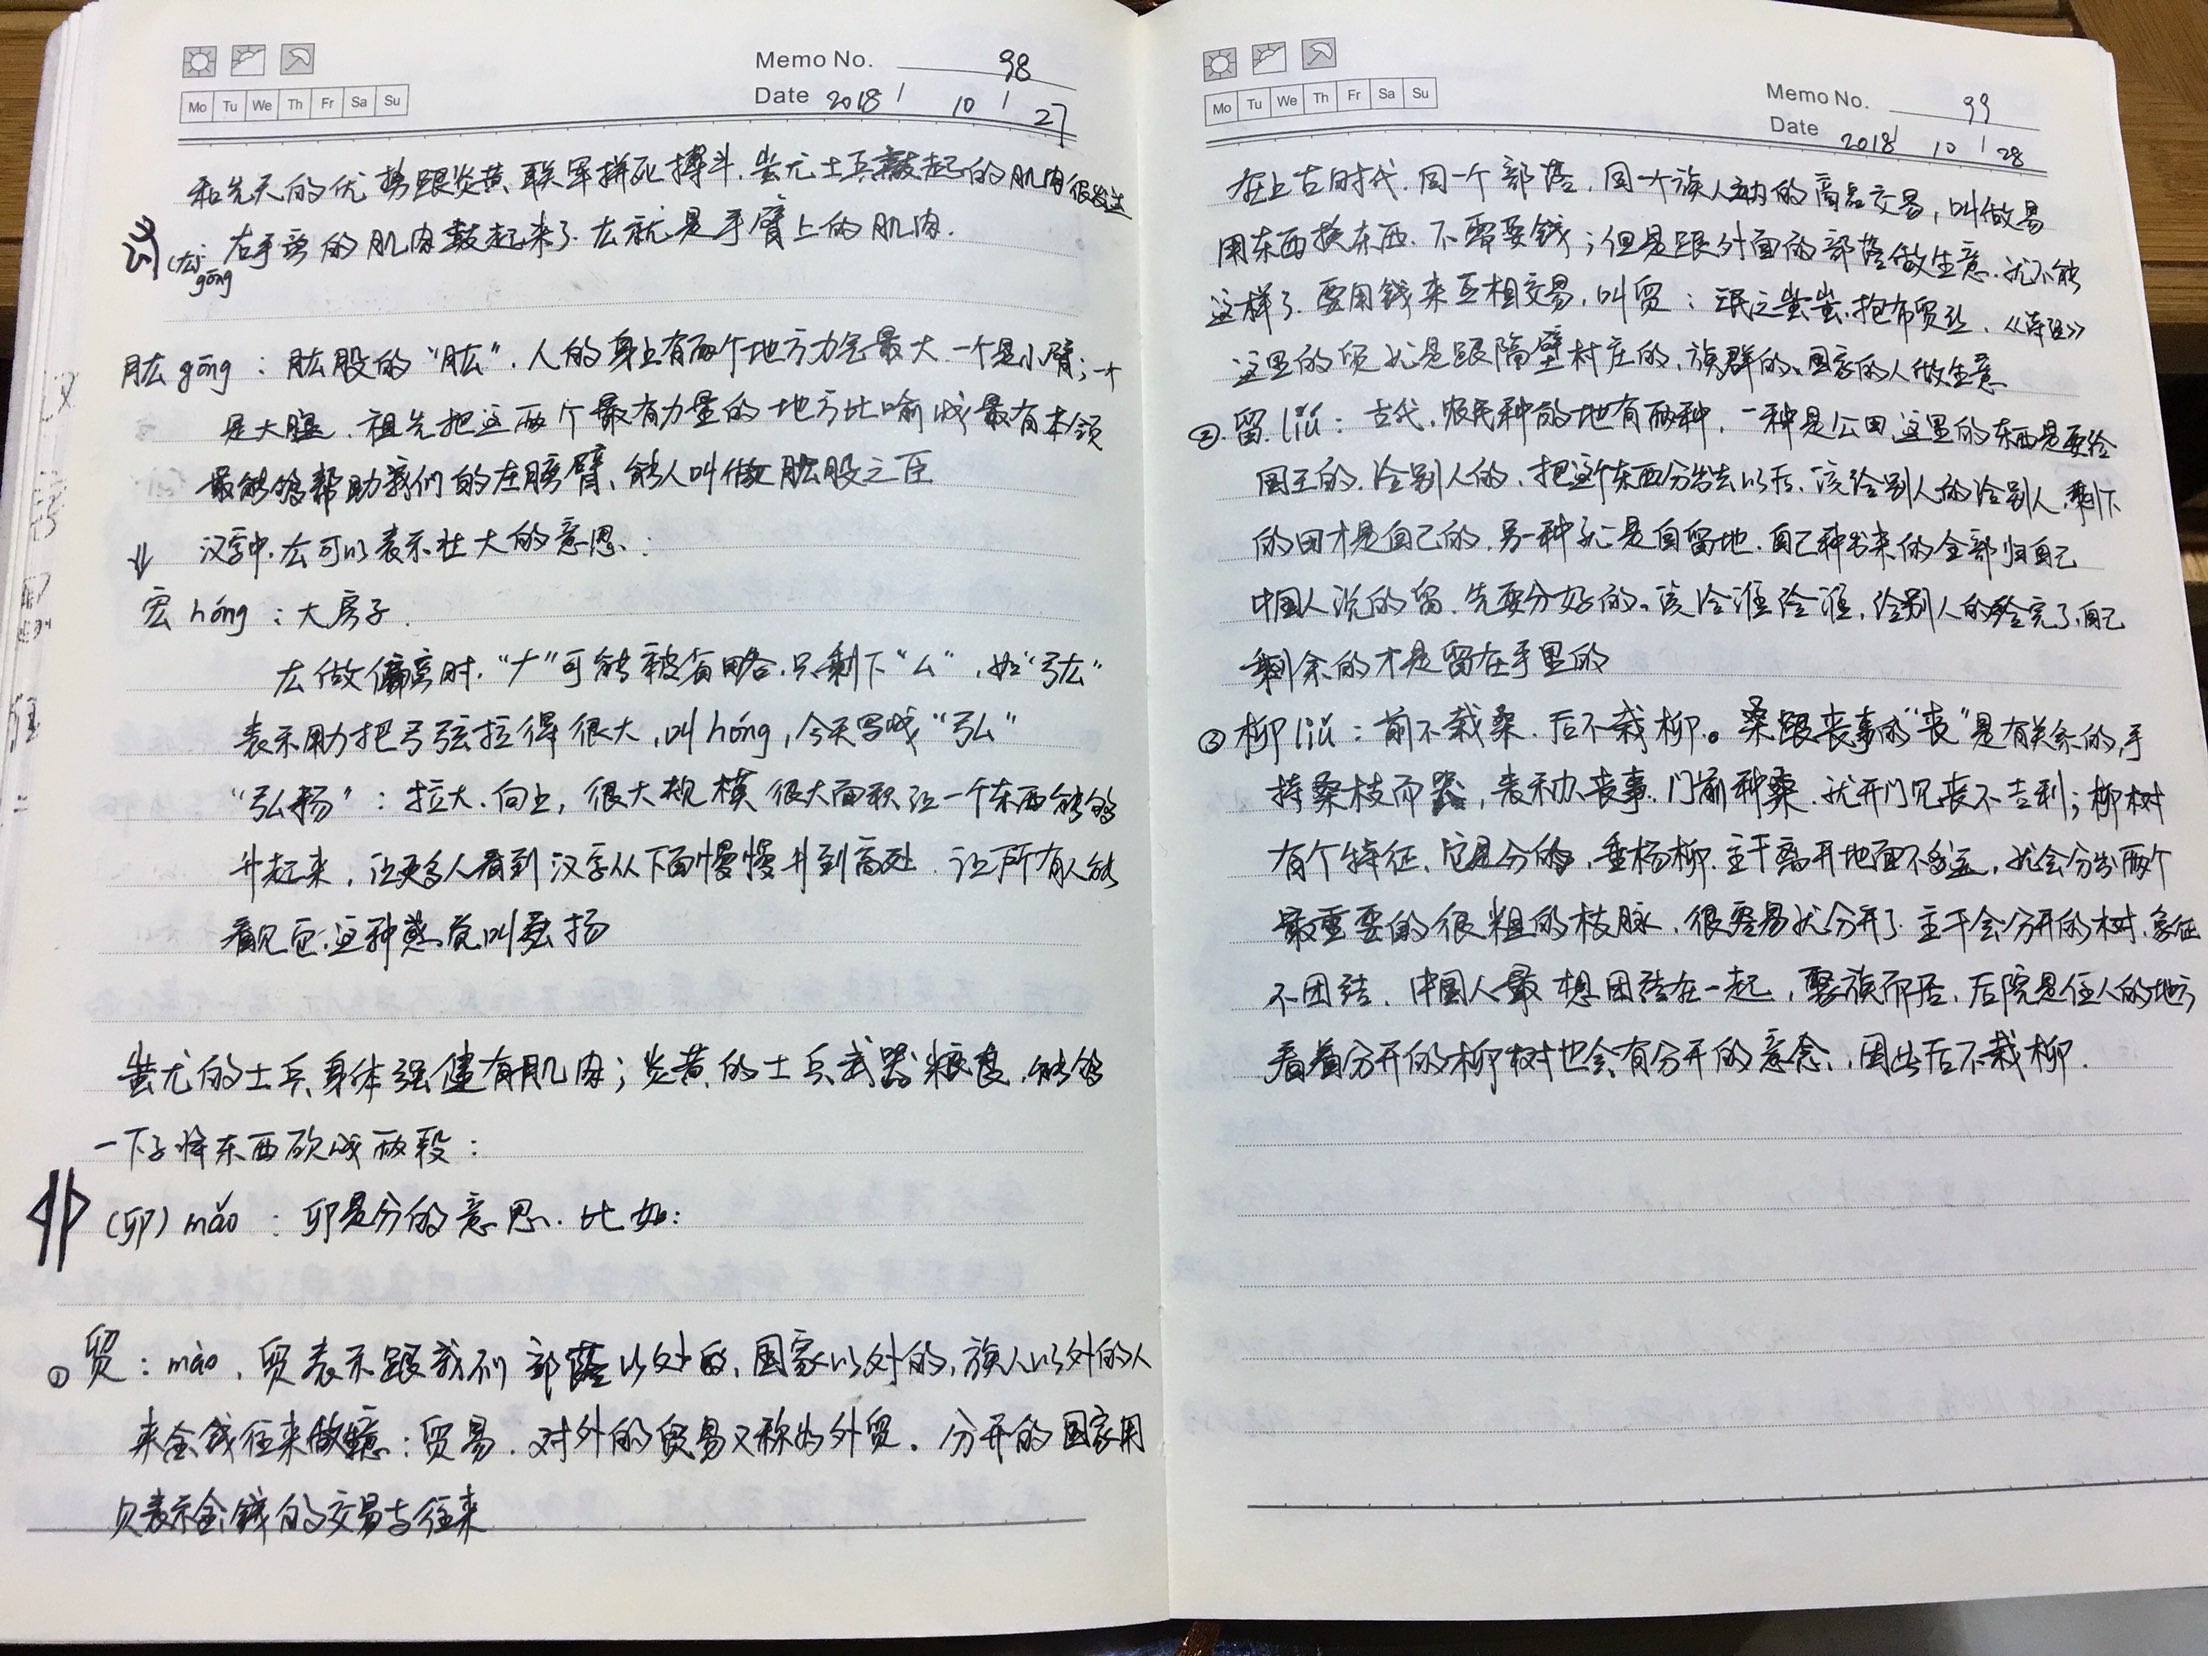 Memo No. 98
Mo Tu We Th Fr Sa Su
Date 2018 / 10 / 27
和先天的优势跟炎黄联军拼死搏斗.蚩尤士兵鼓起的肌肉很发达
(厷) gōng 右手旁的肌肉鼓起来了.厷就是手臂上的肌肉.
肱gōng：肱股的“肱”.人的身上有两个地方力气最大 一个是小臂；一个
是大腿.祖先把这两个最有力量的地方比喻成最有本领
最能够帮助我们的左膀臂、能人叫做肱股之臣
⇓ 汉字中.厷可以表示壮大的意思.：
宏hóng：大房子.
厷做偏旁时.“ナ”可能被省略.只剩下“厶”，如“弓厷”
表示用力把弓弦拉得很大,叫hóng,今天写成“弘”
“弘扬”：拉大.向上,很大规模很大面积让一个东西能够
升起来,让更多人看到汉字从下面慢慢升到高处.让所有人能
看见它.这种感觉叫弘扬
蚩尤的士兵身体强健有肌肉；炎黄的士兵武器精良.能够
一下子将东西砍成两段：
(卯) mǎo：卯是分的意思.比如：
①贸：mào.贸表示跟我们部落以外的,国家以外的,族人以外的人
来金钱往来做生意：贸易.对外的贸易又称为外贸.分开的国家用
贝表示金钱的交易与往来
Memo No. 99
Mo Tu We Th Fr Sa Su
Date 2018 / 10 / 28
在上古时代.同一个部落,同一个族人之内的商品交易,叫做易
用东西换东西.不需要钱；但是跟外面的部落做生意.就不能
这样了.要用钱来互相交易,叫贸：氓之蚩蚩.抱布贸丝.《诗经》
这里的贸就是跟隔壁村庄的,族群的、国家的人做生意
②.留.liú：古代.农民种的地有两种,一种是公田.这里的东西是要给
国王的.给别人的.把这个东西分出去以后.该给别人的给别人.剩下
的田才是自己的.另一种就是自留地.自己种出来的全部归自己
中国人说的留.先要分好的。该给谁给谁,给别人的给完了.自己
剩余的才是留在手里的
③柳liǔ：前不栽桑.后不栽柳。桑跟丧事的“丧”是有关系的,手
持桑枝而哭,表示办丧事.门前种桑.就开门见丧不吉利；柳树
有个特征.它是分的,垂杨柳.主干离开地面不多远,就会分出两个
最重要的很粗的枝脉.很容易就分开了.主干会分开的树.象征
不团结.中国人最想团结在一起,聚族而居.后院是住人的地方
看着分开的柳树也会有分开的意念.因此后不栽柳.